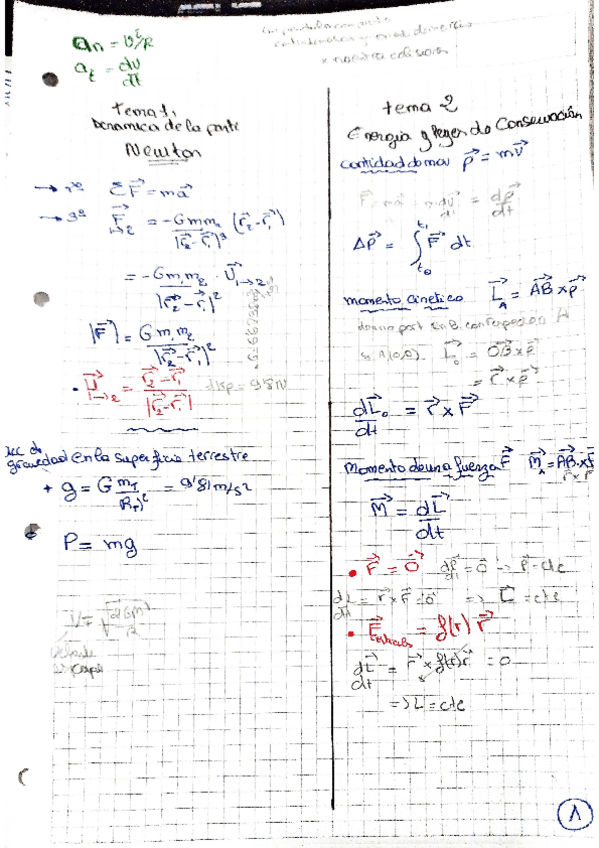 an = v²/R
at = dv/dt
Tema 1.
Dinámica de la parte
Newton
→ 1ª ΣF⃗ = ma⃗
→ 3ª F⃗ 1→2 = -Gmm₂/|r⃗₂-r⃗₁|³ (r⃗₂-r⃗₁)
= -Gm₁m₂/|r⃗₂-r⃗₁|² · U⃗ 1→2
|F⃗| = Gm₁m₂/|r⃗₂-r⃗₁|²
• U⃗ 1→2 = r⃗₂-r⃗₁/|r⃗₂-r⃗₁|
gravedad en la superficie terrestre
+ g = G mT/RT)² = 9'81 m/s²
P = mg
V = √2GM/R
tema 2
Energia y leyes de Conservación
cantidad de mov p⃗ = mv⃗
F⃗ = ma⃗ = mdv⃗/dt = dp⃗/dt
Δp⃗ = ∫t₀ t₁ F⃗ dt
momento cinetico L⃗A = AB⃗ × p⃗
L⃗₀ = OB⃗ × p⃗
= r⃗ × p⃗
dL⃗₀/dt = r⃗ × F⃗
Momento de una fuerza F⃗ M⃗A = AB⃗ × F⃗
r⃗ × F⃗
M⃗ = dL⃗/dt
• F⃗ = 0⃗ dp⃗/dt = 0⃗ → p⃗ = cte
dL/dt = r⃗ × F⃗ = 0⃗ => L⃗ = cte
• F⃗ centrales = f(r) r⃗
dL⃗/dt = r⃗ × f(r)r⃗ = 0
=> L = cte
1